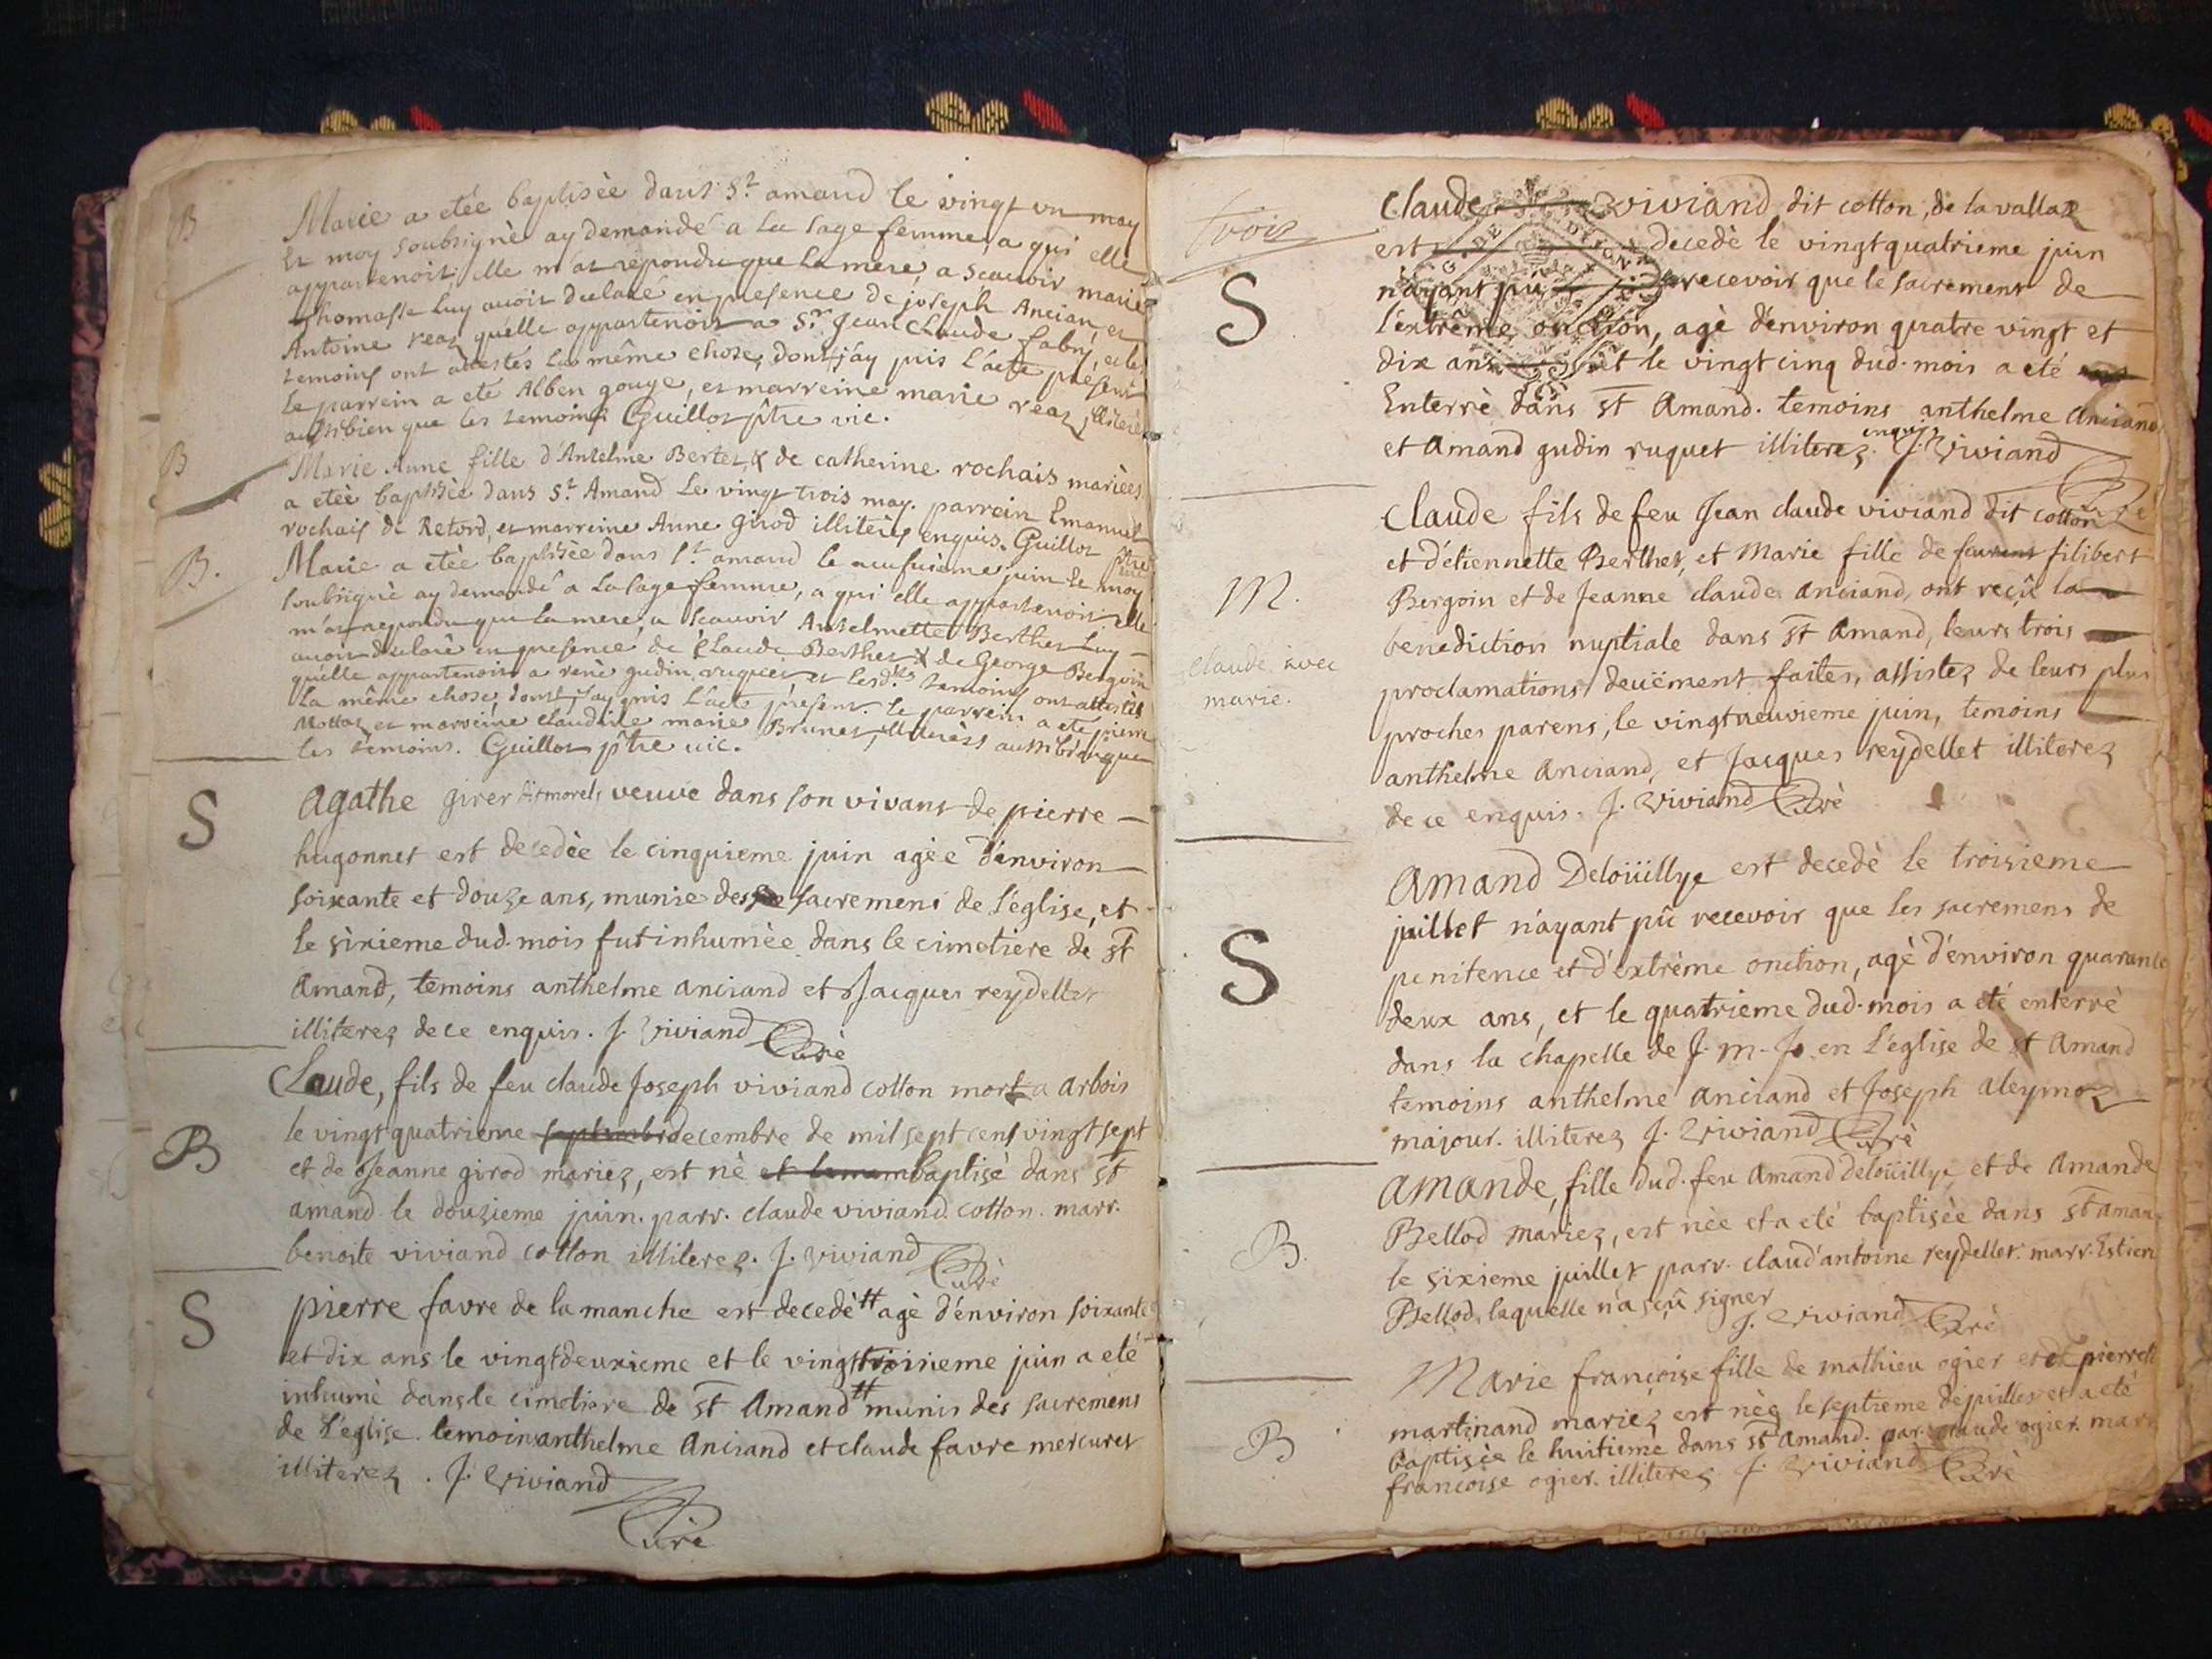 B
Marie a etée baptisée dans St amand le vingt un may
Et moy soubsignè ay demandé a La sage femme, a qui elle
appartenoit, elle m'at repondu que La mere, a scauoir marie
Thomasse Luy auoit declaré en presence de joseph Ancian, et
Antoine reaz qu'elle appartenoit a Sr. jean Claude fabry, et les
temoins ont attestés La même chose, dont j'ay pris L'acte présent
Le parrein a eté Alben gouye, et marreine marie reaz illiterés
aussi bien que les temoins Guillot ptre vic.
B
Marie Anne fille d'Antelme Bertet, & de catherine rochais mariées
a etée baptisée dans St. Amand Le vingt trois may. parrein Emanuel
rochais de Retord, et marreine Anne Girod illiterés enquis. Guillot ptre
vic
B.
Marie a etèe baptisèe dans St amand le neufuième juin et moy
soubsignè ay demandé a La sage femme, a qui elle appartenoit, elle
m'at repondu que La mere, a scauoir Antelmette Berthet Luy
auoit declaré en presence de Claude Berthet & de George Bergoin
quelle appartenoit a renè gudin ruquet et lesdts temoins ont attestès
La même chose, dont j'ay pris L'acte présent. le parrein a eté pierre
Mottaz et marreine claudine marie Brunet, illiterès aussi bien que
les temoins. Guillot ptre vic.
S
Agathe girer dit morel, veuve dans son vivant de pierre
hugonnet est decedèe le cinquieme juin agèe d'environ
soixante et douze ans, munie des sacremens de l'église, et
le sixieme dud. mois fut inhumèe dans le cimetiere de st
Amand, temoins anthelme anciand et Jacques reydellet
illiterez de ce enquis. J. Viviand Curè
B
Claude, fils de feu claude Joseph viviand cotton mort a arbois
le vingt quatrieme septembre decembre de mil sept cent vingt sept
et de Jeanne girod mariez, est nè et baptisè dans st
amand le douzieme juin. parr. claude viviand cotton. marr.
benoite viviand cotton illiterez. J. Viviand Curè
S
pierre favre de la manche est decedè # agè d'environ soixante
et dix ans le vingt deuxieme et le vingt troisieme juin a eté
inhumè dans le cimetiere de st Amand # munis des sacremens
de l'église. temoins anthelme Anciand et claude favre mercuret
illiterez. J. Viviand
Curè
trois
S
Claude viviand dit cotton, de la vallaz
est decedè le vingt quatrieme juin
n'ayant pu recevoir que le sacrement de
l'extrême onction, agè d'environ quatre vingt et
dix ans et le vingt cinq dud. mois a eté
Enterrè dans st Amand. temoins anthelme Anciand
et Amand gudin ruquet illiterez enquis J. Viviand
Curè
M.
claude avec
marie.
Claude fils de feu Jean claude viviand dit cotton
et d'étiennette Berthet, et Marie fille de filibert
Bergoin et de Jeanne claude Anciand, ont reçû la
benediction nuptiale dans st Amand, leurs trois
proclamations deüement faites, assistez de leurs plus
proches parens, le vingt neuvieme juin, temoins
anthelme Anciand, et Jacques reydellet illiterez
de ce enquis. J. Viviand Curè
S
Amand Deloüillye est decedè le troisieme
juillet n'ayant pû recevoir que les sacremens de
penitence et d'extrême onction, agè d'environ quarante
deux ans, et le quatrieme dud. mois a eté enterrè
dans la chapelle de J. M. J. en l'église de st Amand
temoins anthelme Anciand et Joseph aleymoz
majour. illiterez J. Viviand Curè
B.
Amande, fille dud. feu Amand deloüillye, et de Amande
Bellod mariez, est nèe et a eté baptisèe dans st aman
le sixieme juillet parr. claud'antoine reydellet. marr. Estien
Bellod, laquelle n'a sçû signer
J. Viviand Curè
B
Marie françoise fille de mathieu ogier et de pierrete
martinand mariez est nèe le septieme de juillet et a eté
baptisèe le huitieme dans st Amand. par. claude ogier. marr
françoise ogier. illiterez J. Viviand Curè